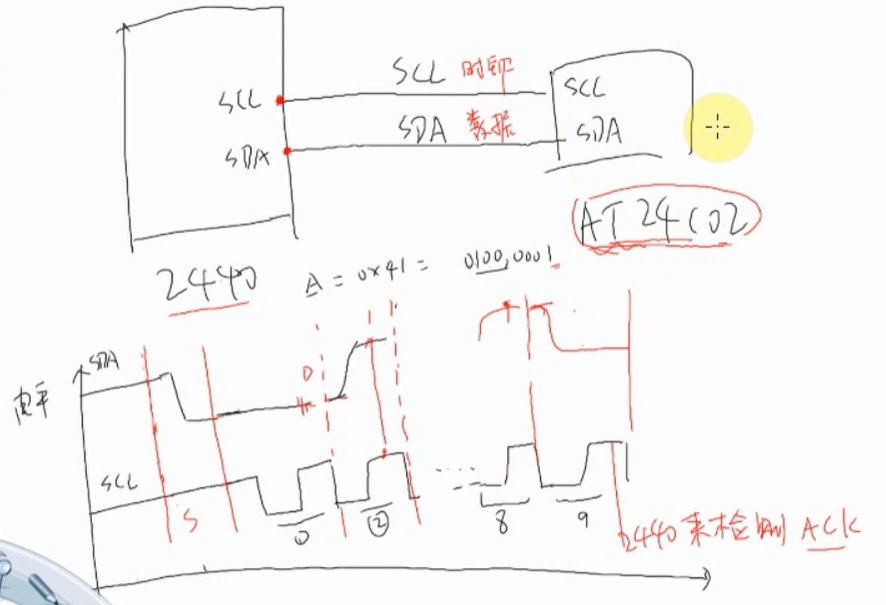 SCL 时钟
SCL
SCL
SDA 数据
SDA
SDA
AT24C02
2440
A = 0x41 = 0100,0001
SDA
电平
0
SCL
S
①
②
....
8
9
2440来检测ACK